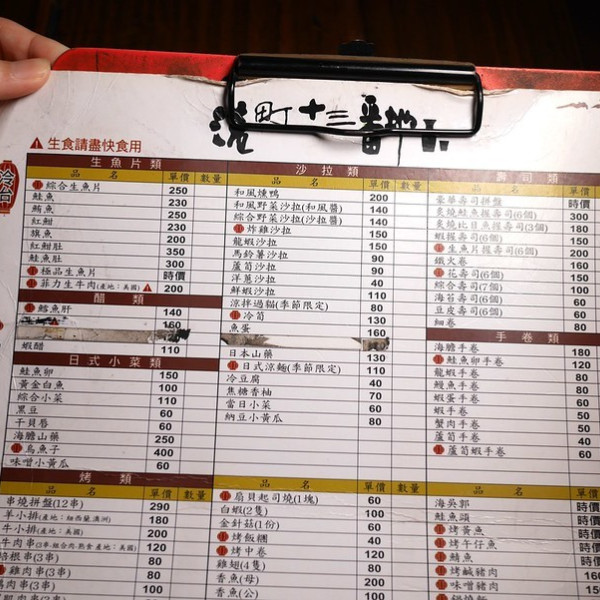 町十三番地
⚠生食請盡快食用
冷台
生魚片類
品名 單價 數量
綜合生魚片 250
鮭魚 230
鮪魚 250
紅魽 230
旗魚 200
紅魽肚 350
鮭魚肚 300
極品生魚片 時價
菲力生牛肉(產地:美國)⚠ 200
醋類
鱈魚肝 140
160
蝦醋 110
日式小菜類
鮭魚卵 150
黃金白魚 100
綜合小菜 110
黑豆 60
干貝唇 60
海膽山藥 250
烏魚子 400
味噌小黃瓜 60
烤類
品名 單價 數量
串燒拼盤(12串) 290
羊小排(產地:紐西蘭.澳洲) 180
牛小排(產地:美國) 200
牛肉串(3串.組合肉.熟食 產地:美國) 120
培根串(3串) 80
雞肉串(3串) 80
沙拉類
品名 單價 數量
和風燻鴨 200
和風野菜沙拉(和風醬) 140
綜合野菜沙拉(沙拉醬) 140
炸雞沙拉 150
龍蝦沙拉 150
馬鈴薯沙拉 90
蘆筍沙拉 90
洋蔥沙拉 40
鮮蝦沙拉 110
涼拌過貓(季節限定) 80
冷筍 130
魚蛋 160
日本山藥 130
日式涼麵(季節限定) 110
冷豆腐 40
焦糖香柚 70
當日小菜 60
納豆小黃瓜 80
品名 單價 數量
扇貝起司燒(1塊) 60
白蝦(2隻) 100
金針菇(1份) 60
烤飯糰 40
烤中卷 120
雞翅(4隻) 80
香魚(母) 200
香魚(公) 100
壽司類
品名 單價
豪華壽司拼盤 時價
炙燒鮭魚握壽司(6個) 300
炙燒比目魚握壽司(3個) 180
蝦握壽司(6個) 150
生魚片握壽司(6個) 200
鐵火卷 160
花壽司(6個) 150
綜合壽司(7個) 100
海苔壽司(6個) 60
豆皮壽司(6個) 60
細卷 80
手卷類
海膽手卷 180
鮭魚卵手卷 120
龍蝦手卷 80
鰻魚手卷 80
蝦蛋手卷 60
蝦手卷 50
蟹肉手卷 50
蘆筍手卷 40
蘆筍蝦手卷 60
品名 單價
海吳郭 時價
鮭魚頭 時價
烤黃魚 時價
烤午仔魚 時價
鯖魚 時價
烤鹹豬肉
味噌豬肉